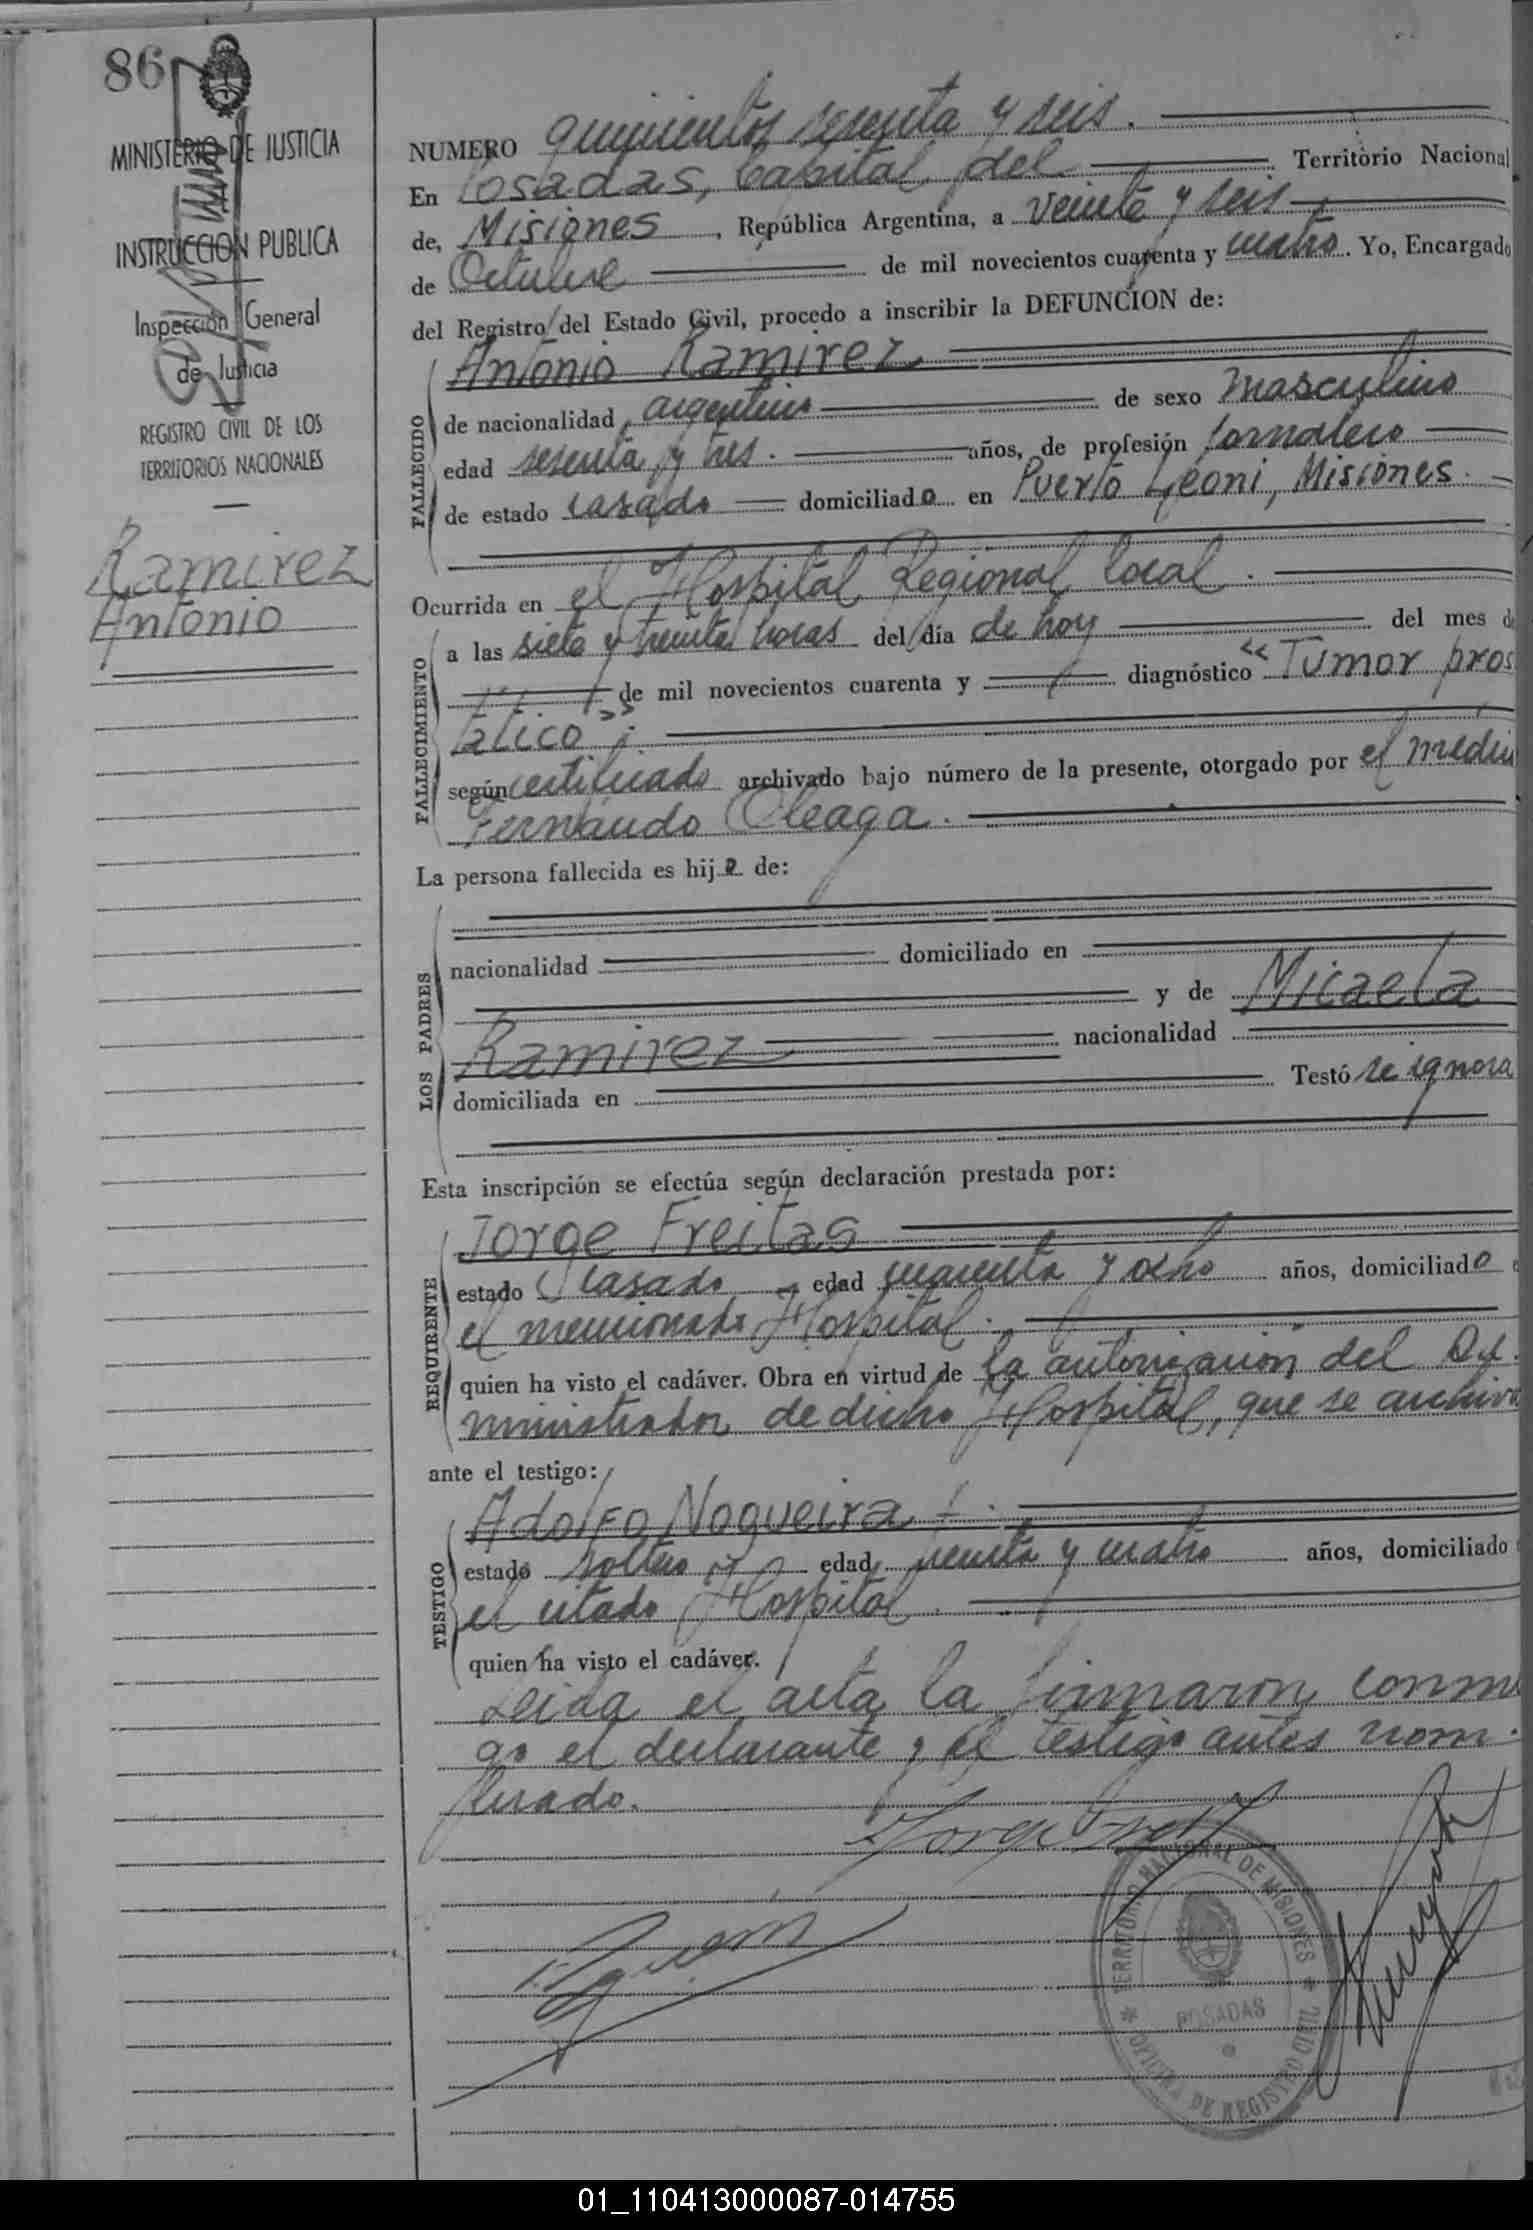 86
MINISTERIO DE JUSTICIA
INSTRUCCION PUBLICA
Inspección General
de Justicia
REGISTRO CIVIL DE LOS
TERRITORIOS NACIONALES
Ramirez
Antonio
NUMERO quinientos sesenta y seis.
En Posadas, Capital del Territorio Nacional
de, Misiones, República Argentina, a veinte y seis
de Octubre de mil novecientos cuarenta y cuatro. Yo, Encargado
del Registro del Estado Civil, procedo a inscribir la DEFUNCION de:
FALLECIDO
Antonio Ramirez
de nacionalidad argentino de sexo masculino
edad sesenta y tres. años, de profesión jornalero
de estado casado domiciliado en Puerto Leoni, Misiones.
Ocurrida en el Hospital Regional local.
FALLECIMIENTO
a las siete y treinta horas del día de hoy del mes d
de mil novecientos cuarenta y diagnóstico "Tumor pros
tatico";
según certificado archivado bajo número de la presente, otorgado por el médic
Fernando Oleaga.
La persona fallecida es hijo de:
LOS PADRES
nacionalidad domiciliado en
y de Micaela
Ramirez nacionalidad
domiciliada en Testó se ignora
Esta inscripción se efectúa según declaración prestada por:
REQUIRENTE
Jorge Freitas
estado casado edad cuarenta y ocho años, domiciliado e
el mencionado Hospital.
quien ha visto el cadáver. Obra en virtud de la autorización del Ad.
ministrador de dicho Hospital, que se archiva
ante el testigo:
TESTIGO
Adolfo Nogueira
estado soltero edad treinta y cuatro años, domiciliado
el citado Hospital.
quien ha visto el cadáver.
Leida el acta la firmaron conmi
go el declarante y el testigo antes nom-
brado.
TERRITORIO NACIONAL DE MISIONES
POSADAS
OFICINA DE REGISTRO CIVIL
01_110413000087-014755